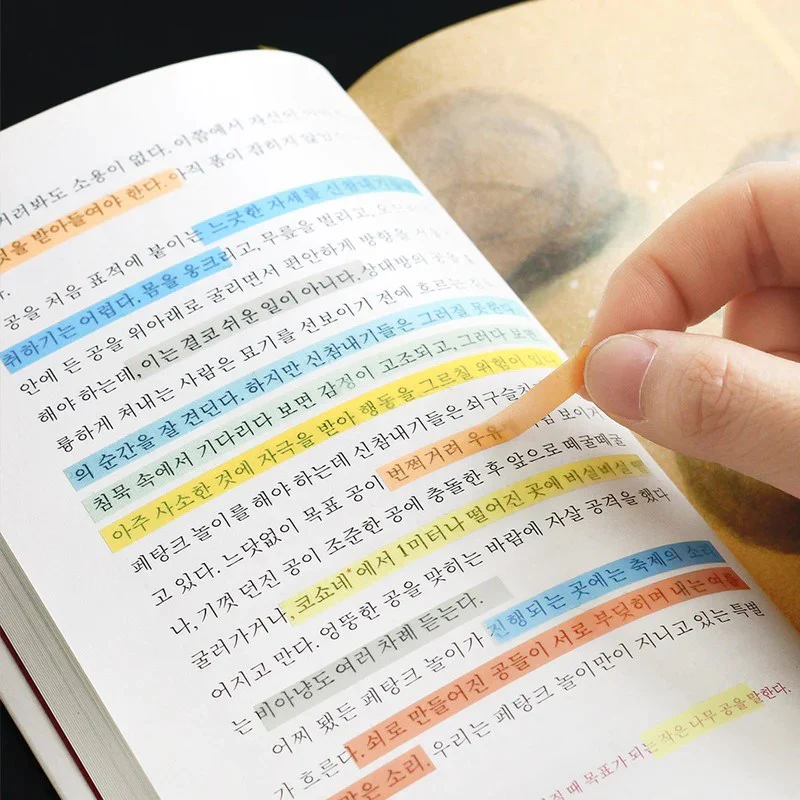 거려봐도 소용이 없다. 이쯤에서 자신의
것을 받아들여야 한다. 아직 폼이 잡히지 않았
다.
공을 처음 표적에 붙이는 느긋한 자세를 신참내기
취하기는 어렵다. 몸을 웅크리고, 무릎을 벌리고,
안에 든 공을 위아래로 굴리면서 편안하게 방향을
해야 하는데, 이는 결코 쉬운 일이 아니다. 상대방의 공을
륭하게 쳐내는 사람은 묘기를 선보이기 전에 흐르는
의 순간을 잘 견딘다. 하지만 신참내기들은 그러질 못한다.
침묵 속에서 기다리다 보면 감정이 고조되고, 그러다 보면
아주 사소한 것에 자극을 받아 행동을 그르칠 위험이 있
페탕크 놀이를 해야 하는데 신참내기들은 쇠구슬치
고 있다. 느닷없이 목표 공이 번쩍거려 우유 보이거
나, 기껏 던진 공이 조준한 공에 충돌한 후 앞으로 떼굴떼굴
굴러가거나, 코쇼네*에서 1미터나 떨어진 곳에 비실비실
어지고 만다. 엉뚱한 공을 맞히는 바람에 자살 공격을 했다
는 비아냥도 여러 차례 듣는다.
어찌 됐든 페탕크 놀이가 진행되는 곳에는 축제의 소리
가 흐른다. 쇠로 만들어진 공들이 서로 부딪히며 내는 여름
같은 소리. 우리는 페탕크 놀이만이 지니고 있는 특별
때 목표가 되는 작은 나무 공을 말한다.